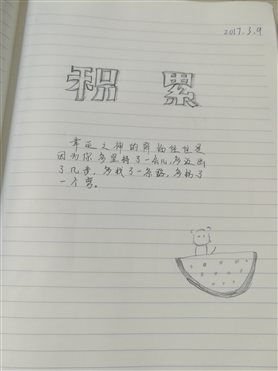 2017.3.9
积累
幸运之神的降临往往是
因为你多坚持了一会儿,多迈出
了几步,多找了一条路,多拐了
一个弯。